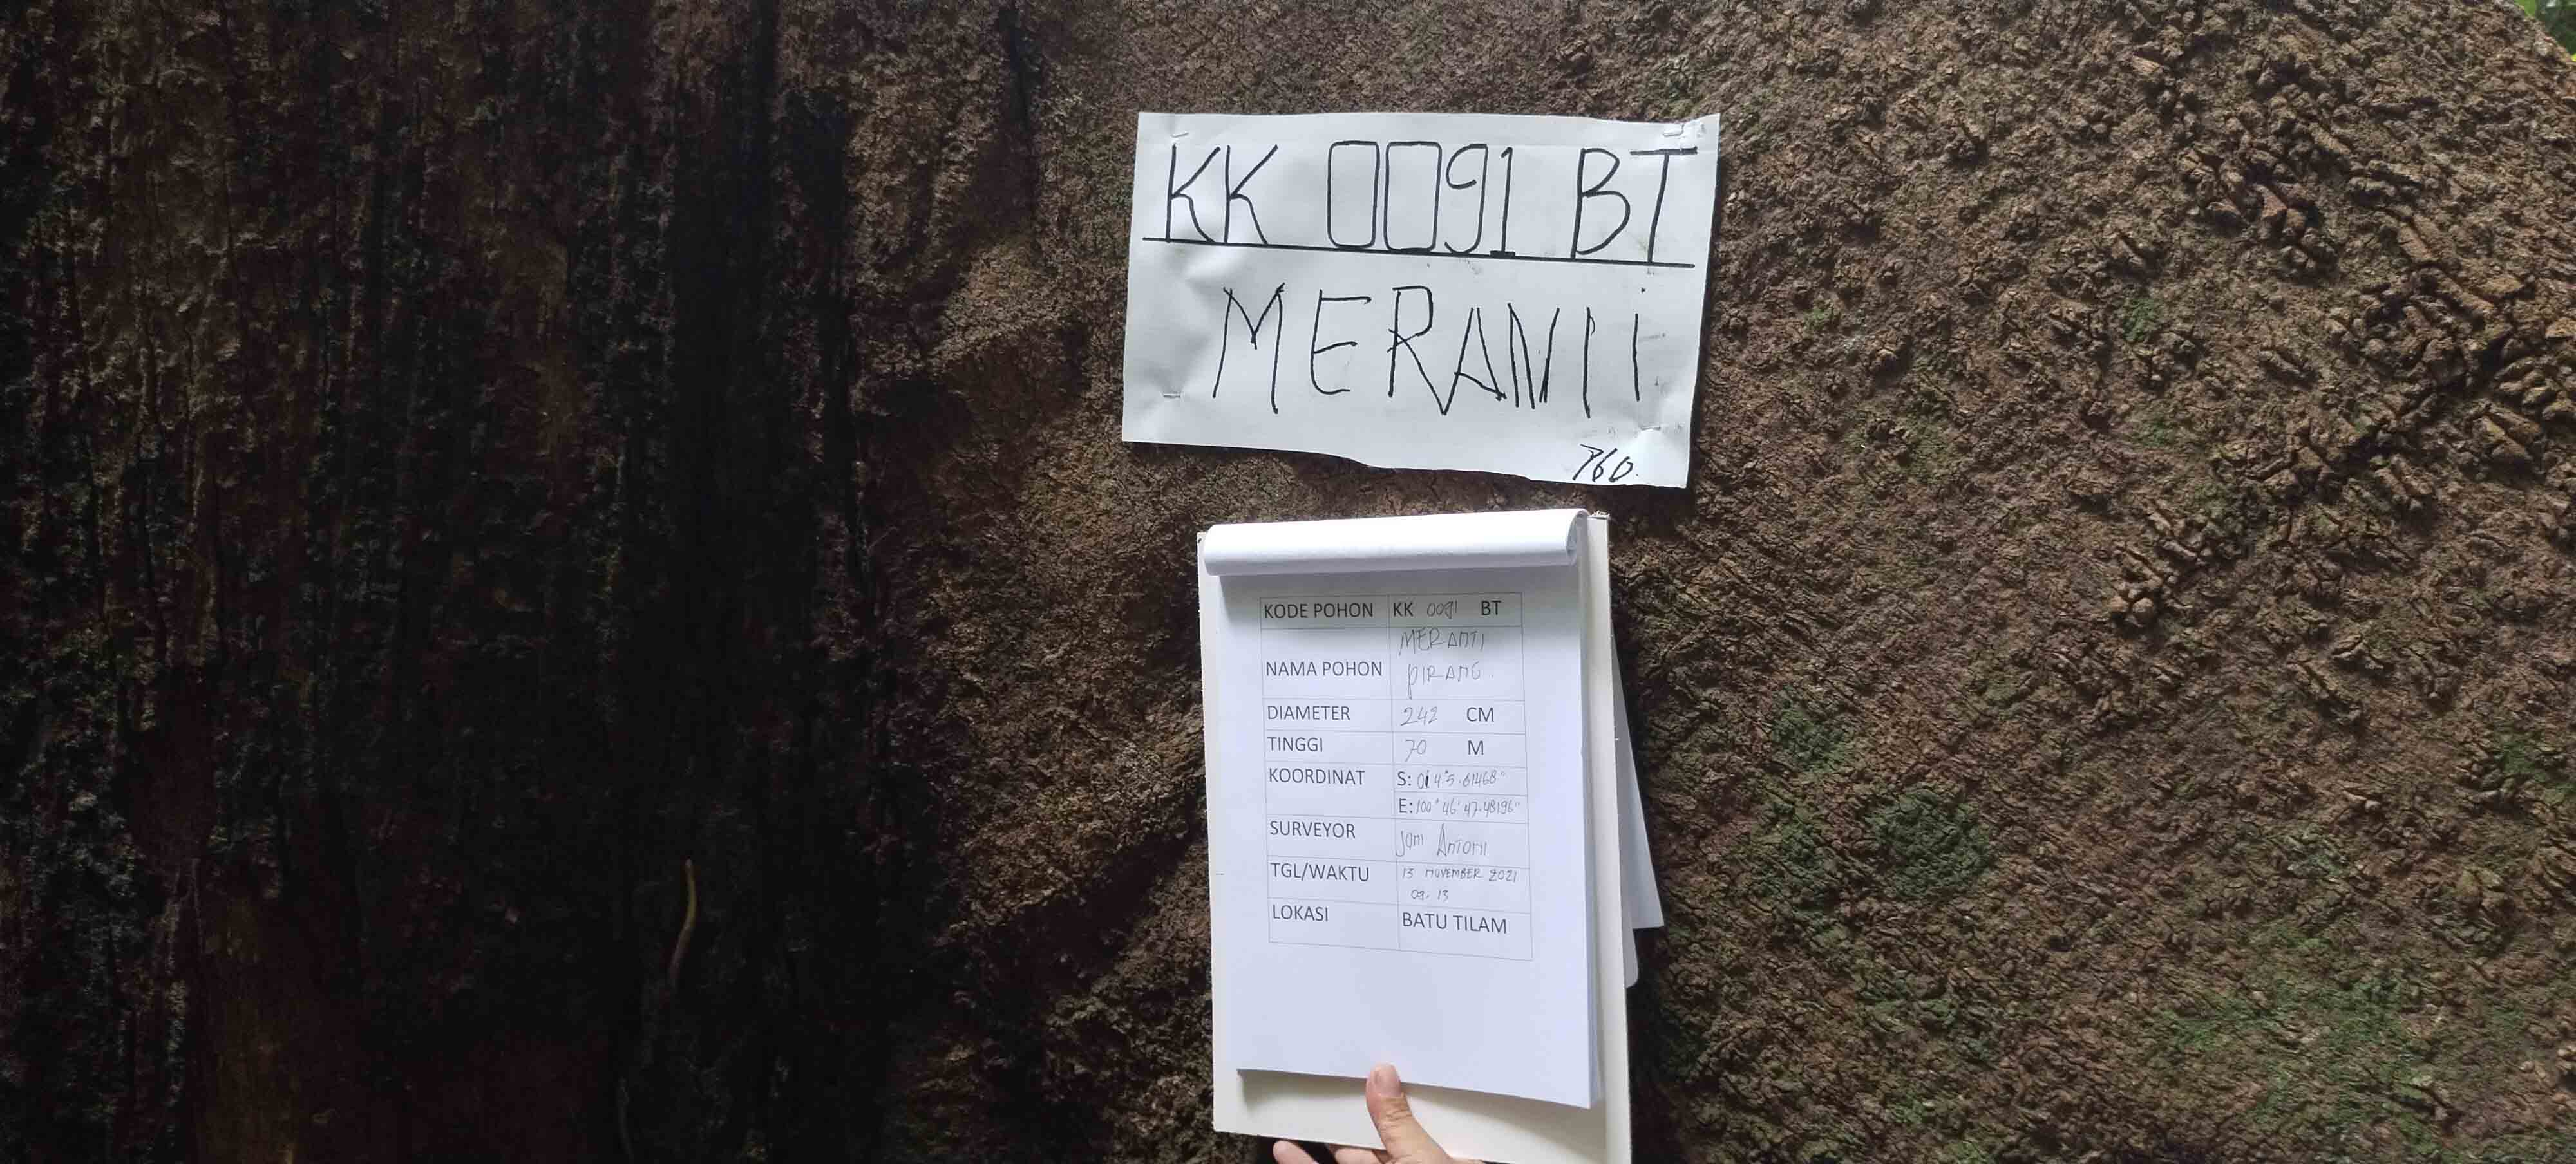 KK 0091 BT
MERANTI
760.
KODE POHON KK 0091 BT
NAMA POHON MERANTI
PIRANG.
DIAMETER 242 CM
TINGGI 70 M
KOORDINAT S: 4'5.61468"
E: 100° 46' 47.48196"
SURVEYOR Joni Antoni
TGL/WAKTU 13 NOVEMBER 2021
09.13
LOKASI BATU TILAM